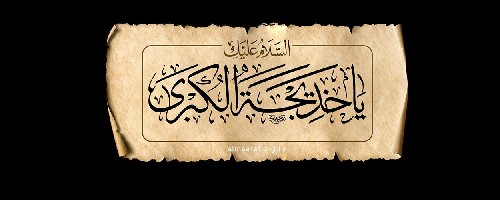 السَّلَامُ عَلَيْكِ
يَا خَدِيجَةَ الكُبْرَى
almaaref.org.lb